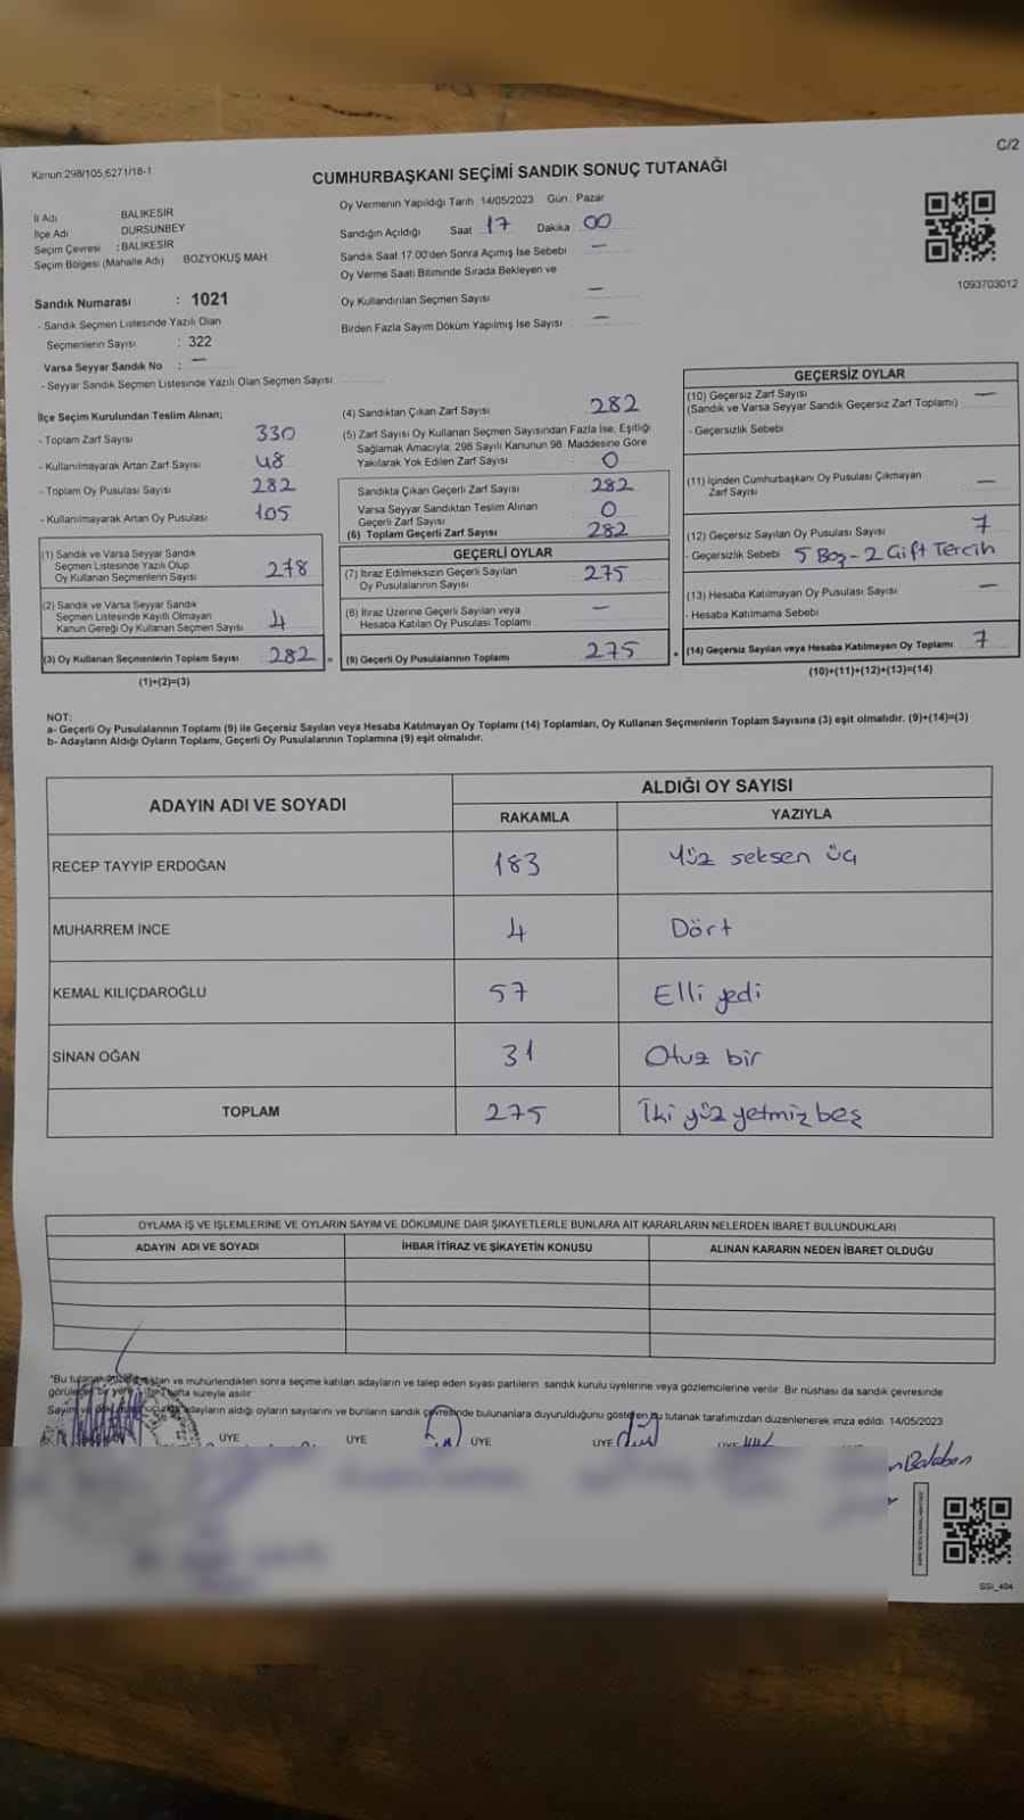 C/2
Kanun:298/105,6271/18-1
CUMHURBAŞKANI SEÇİMİ SANDIK SONUÇ TUTANAĞI
İl Adı BALIKESİR
İlçe Adı DURSUNBEY
Seçim Çevresi : BALIKESİR
Seçim Bölgesi (Mahalle Adı) BOZYOKUŞ MAH
Sandık Numarası : 1021
- Sandık Seçmen Listesinde Yazılı Olan
Seçmenlerin Sayısı : 322
Varsa Seyyar Sandık No : —
- Seyyar Sandık Seçmen Listesinde Yazılı Olan Seçmen Sayısı
Oy Vermenin Yapıldığı Tarih 14/05/2023 Gün : Pazar
Sandığın Açıldığı Saat 17 Dakika 00
Sandık Saat 17.00'den Sonra Açılmış İse Sebebi —
Oy Verme Saati Bitiminde Sırada Bekleyen ve
Oy Kullandırılan Seçmen Sayısı —
Birden Fazla Sayım Döküm Yapılmış İse Sayısı —
1093703012
İlçe Seçim Kurulundan Teslim Alınan;
- Toplam Zarf Sayısı 330
- Kullanılmayarak Artan Zarf Sayısı 48
- Toplam Oy Pusulası Sayısı 282
- Kullanılmayarak Artan Oy Pusulası 105
(1) Sandık ve Varsa Seyyar Sandık
Seçmen Listesinde Yazılı Olup
Oy Kullanan Seçmenlerin Sayısı 278
(2) Sandık ve Varsa Seyyar Sandık
Seçmen Listesinde Kayıtlı Olmayan
Kanun Gereği Oy Kullanan Seçmen Sayısı 4
(3) Oy Kullanan Seçmenlerin Toplam Sayısı 282 =
(1)+(2)=(3)
(4) Sandıktan Çıkan Zarf Sayısı 282
(5) Zarf Sayısı Oy Kullanan Seçmen Sayısından Fazla İse, Eşitliği
Sağlamak Amacıyla, 298 Sayılı Kanunun 98. Maddesine Göre
Yakılarak Yok Edilen Zarf Sayısı 0
Sandıkta Çıkan Geçerli Zarf Sayısı 282
Varsa Seyyar Sandıktan Teslim Alınan
Geçerli Zarf Sayısı 0
(6) Toplam Geçerli Zarf Sayısı 282
GEÇERLİ OYLAR
(7) İtiraz Edilmeksizin Geçerli Sayılan
Oy Pusulalarının Sayısı 275
(8) İtiraz Üzerine Geçerli Sayılan veya
Hesaba Katılan Oy Pusulası Toplamı —
(9) Geçerli Oy Pusulalarının Toplamı 275 +
GEÇERSİZ OYLAR
(10) Geçersiz Zarf Sayısı —
(Sandık ve Varsa Seyyar Sandık Geçersiz Zarf Toplamı)
- Geçersizlik Sebebi
(11) İçinden Cumhurbaşkanı Oy Pusulası Çıkmayan
Zarf Sayısı —
(12) Geçersiz Sayılan Oy Pusulası Sayısı 7
- Geçersizlik Sebebi 5 Boş - 2 Çift Tercih
(13) Hesaba Katılmayan Oy Pusulası Sayısı —
- Hesaba Katılmama Sebebi
(14) Geçersiz Sayılan veya Hesaba Katılmayan Oy Toplamı 7
(10)+(11)+(12)+(13)=(14)
NOT:
a- Geçerli Oy Pusulalarının Toplamı (9) ile Geçersiz Sayılan veya Hesaba Katılmayan Oy Toplamı (14) Toplamları, Oy Kullanan Seçmenlerin Toplam Sayısına (3) eşit olmalıdır. (9)+(14)=(3)
b- Adayların Aldığı Oyların Toplamı, Geçerli Oy Pusulalarının Toplamına (9) eşit olmalıdır.
ADAYIN ADI VE SOYADI ALDIĞI OY SAYISI
RAKAMLA YAZIYLA
RECEP TAYYİP ERDOĞAN 183 Yüz seksen üç
MUHARREM İNCE 4 Dört
KEMAL KILIÇDAROĞLU 57 Elli yedi
SİNAN OĞAN 31 Otuz bir
TOPLAM 275 İki yüz yetmiz beş
OYLAMA İŞ VE İŞLEMLERİNE VE OYLARIN SAYIM VE DÖKÜMÜNE DAİR ŞİKAYETLERLE BUNLARA AİT KARARLARIN NELERDEN İBARET BULUNDUKLARI
ADAYIN ADI VE SOYADI İHBAR İTİRAZ VE ŞİKAYETİN KONUSU ALINAN KARARIN NEDEN İBARET OLDUĞU
"Bu ve mühürlendikten sonra seçime katılan adayların ve talep eden siyasi partilerin sandık kurulu üyelerine veya gözlemcilerine verilir. Bir nüshası da sandık çevresinde
hafta süreyle asılır.
adayların aldığı oyların sayılarını ve bunların sandık çevresinde bulunanlara duyurulduğunu gösteren bu tutanak tarafımızdan düzenlenerek imza edildi. 14/05/2023
ÜYE ÜYE ÜYE ÜYE ÜYE
SSI_404